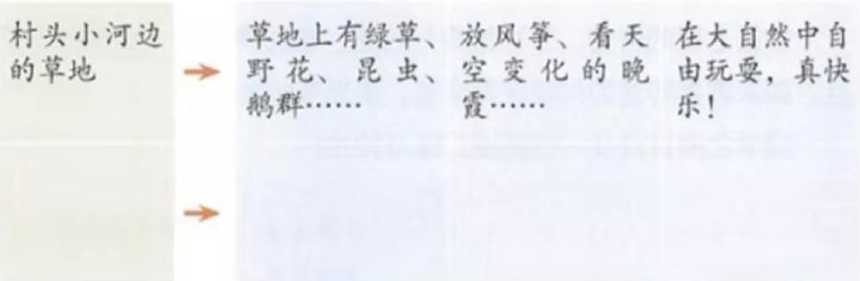 村头小河边
的草地
草地上有绿草、
野花、昆虫、
鹅群……
放风筝、看天
空变化的晚
霞……
在大自然中自
由玩耍，真快
乐！